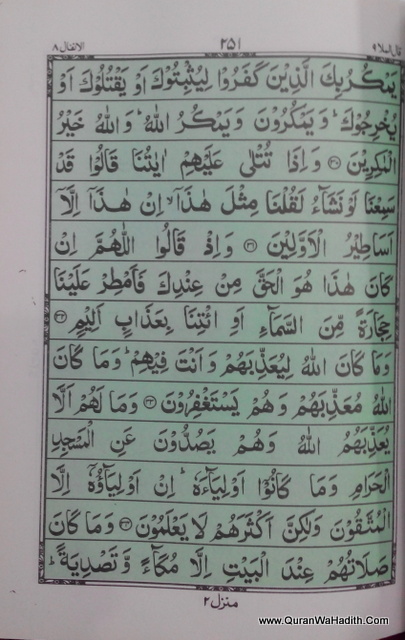 قال الملا ۹ ۲۵۱ الانفال ۸
يَمْكُرُ بِكَ الَّذِيْنَ كَفَرُوْا لِيُثْبِتُوْكَ اَوْ يَقْتُلُوْكَ اَوْ
يُخْرِجُوْكَ ؕ وَيَمْكُرُوْنَ وَيَمْكُرُ اللّٰهُ ؕ وَاللّٰهُ خَيْرُ
الْمٰكِرِيْنَ ﴿۳۰﴾ وَاِذَا تُتْلٰى عَلَيْهِمْ اٰيٰتُنَا قَالُوْا قَدْ
سَمِعْنَا لَوْ نَشَآءُ لَقُلْنَا مِثْلَ هٰذَاۤ ۙ اِنْ هٰذَاۤ اِلَّاۤ
اَسَاطِيْرُ الْاَوَّلِيْنَ ﴿۳۱﴾ وَاِذْ قَالُوا اللّٰهُمَّ اِنْ
كَانَ هٰذَا هُوَ الْحَقَّ مِنْ عِنْدِكَ فَاَمْطِرْ عَلَيْنَا
حِجَارَةً مِّنَ السَّمَآءِ اَوِ ائْتِنَا بِعَذَابٍ اَلِيْمٍ ﴿۳۲﴾
وَمَا كَانَ اللّٰهُ لِيُعَذِّبَهُمْ وَاَنْتَ فِيْهِمْ ؕ وَمَا كَانَ
اللّٰهُ مُعَذِّبَهُمْ وَهُمْ يَسْتَغْفِرُوْنَ ﴿۳۳﴾ وَمَا لَهُمْ اَلَّا
يُعَذِّبَهُمُ اللّٰهُ وَهُمْ يَصُدُّوْنَ عَنِ الْمَسْجِدِ
الْحَرَامِ وَمَا كَانُوْۤا اَوْلِيَآءَهٗ ؕ اِنْ اَوْلِيَآؤُهٗۤ اِلَّا
الْمُتَّقُوْنَ وَلٰكِنَّ اَكْثَرَهُمْ لَا يَعْلَمُوْنَ ﴿۳۴﴾ وَمَا كَانَ
صَلَاتُهُمْ عِنْدَ الْبَيْتِ اِلَّا مُكَآءً وَّتَصْدِيَةً ؕ
منزل ۲
www.QuranWaHadith.Com